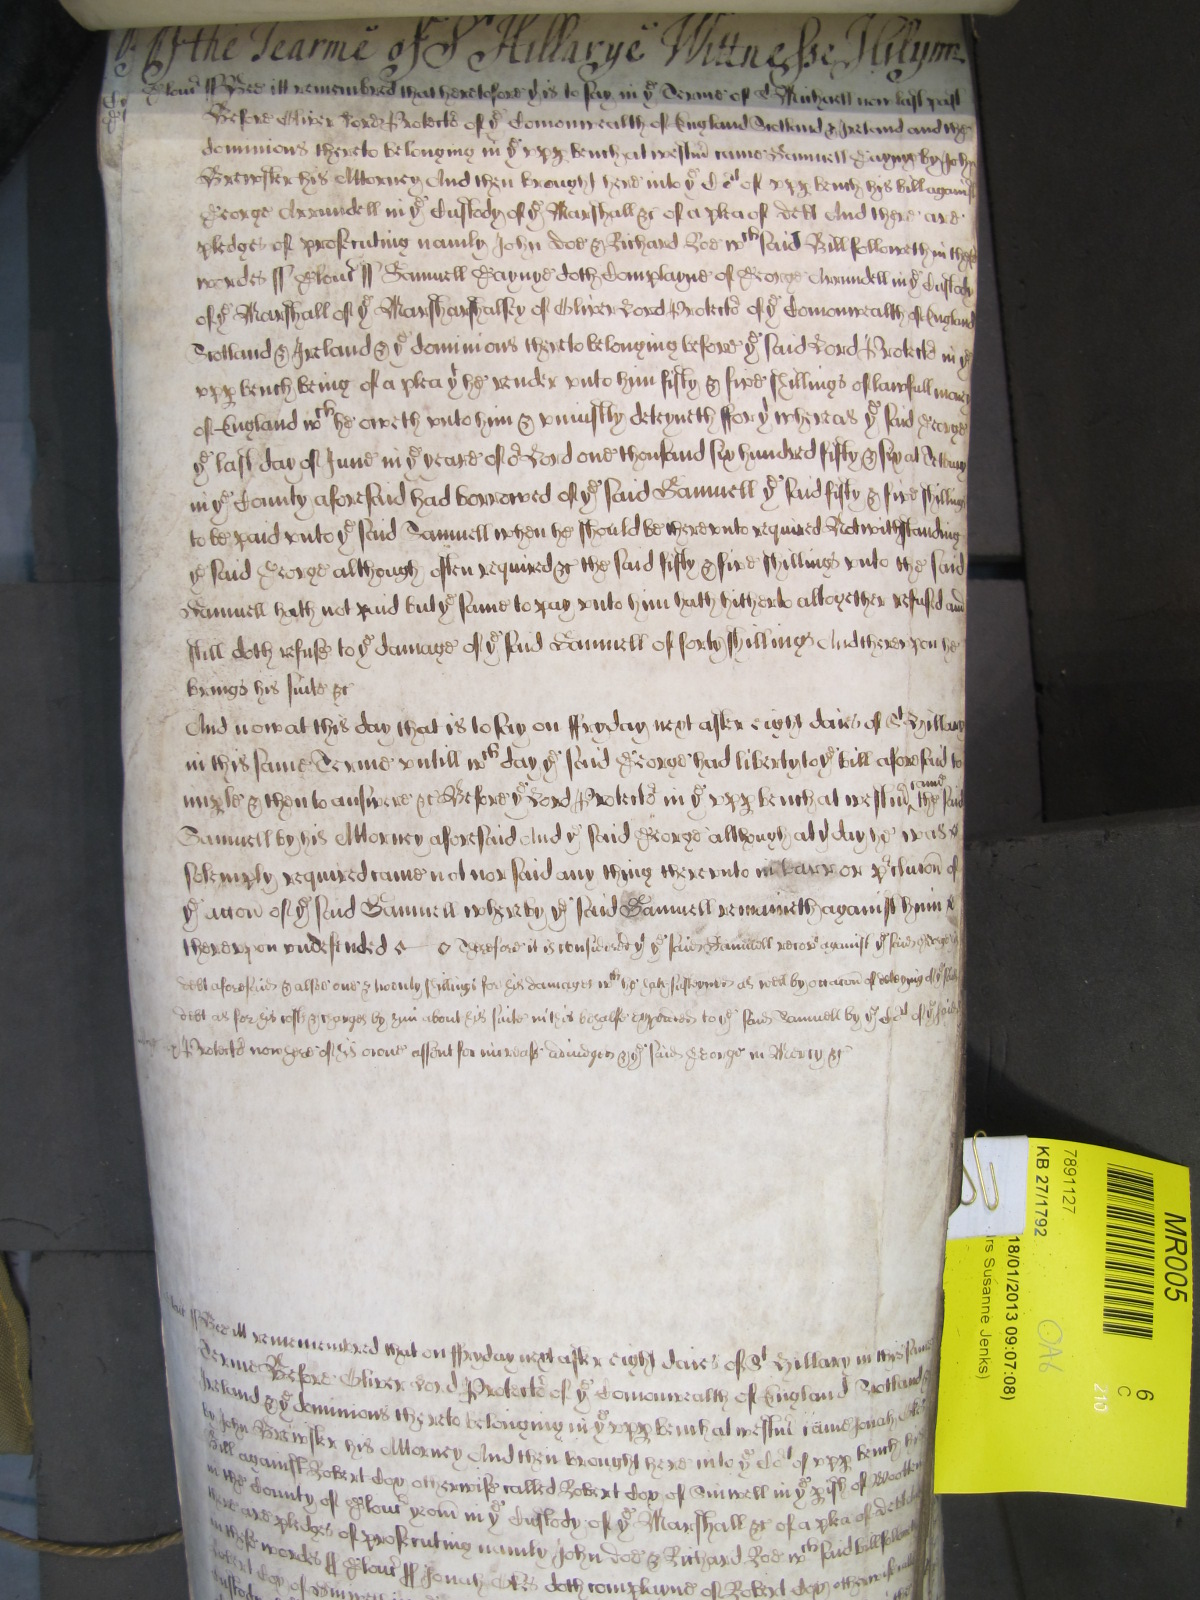 Of the Tearme of St Hillarye Wittnesse
Glouc ss Bee itt remembred that heretofore yt is to say in ye Terme of St Michaell now last past
Before Oliver Lord Protector of ye Comonwealth of England Scotland & Ireland and the
dominions thereto belonging in ye upp bench at westm came Samuell Gaynye by John
Brewster his Attorney And then brought here into ye Cort of upp bench his bill against
George Arrundell in ye Custody of ye Marshall &c of a plea of debt And there are
pledges of prosecuting namely John doe & Richard Roe wch said Bill followeth in these
wordes ss Glouc ss Samuell Gaynye doth Complayne of George Arrundell in ye Custody
of ye Marshall of ye Marsharshalsey of Oliver Lord Protector of ye Comonwealth of England
Scotland & Ireland & ye dominions thereto belonging before ye said Lord Protector in ye
upp bench being of a plea yt he render unto him fifty & five shillings of lawfull money
of England wch he oweth unto him & uniustly deteyneth ffor yt whereas ye said George
ye last day of June in ye yeare of or Lord one thousand six hundred fifty & six at
in ye County aforesaid had borrowed of ye said Samuell ye said fifty & five shillings
to be paid unto ye said Samuell when he should be thereunto required Notwithstanding
ye said George although often required &c the said fifty & five shillings unto the said
Samuell hath not paid but ye same to pay unto him hath hitherto altogether refused and
still doth refuse to ye damage of ye said Samuell of forty shillings And thereupon he
brings his suite &c
And now at this day that is to say on ffryday next after eight daies of St Hillary
in this same Terme untill wch day ye said George had liberty to ye bill aforesaid to
imple & then to answere &c Before ye Lord Protector in ye upp bench at westm came the said
Samuell by his Attorney aforesaid And ye said George although at yt day he was
solemply required came not nor said any thing thereunto in barr or pclucon of
ye accon of ye said Samuell whereby ye said Samuell remaineth against him
thereupon undefended Therefore it is considered yt ye said Samuell recover against ye said George his
debt aforesaid & alsoe one & twenty shillings for his damages wch he hath susteyned as well by occacon of deteyning of ye said
debt as for his costs & charges by him about his suite in this behalfe expended to ye said Samuell by ye Cort of ye said
Lord Protector now here of his owne assent for increase adiudged & ye said George in Mercy &c
Glouc ss Bee itt rememembred that on ffryday next after eight daies of St Hillary in this same
Terme Before Oliver Lord Protector of ye Comonwealth of England Scotland &
Ireland & ye dominions thereto belonging in ye upp bench at westm came Jonah
by John Brewster his Attorney And then brought here into ye Cort of upp bench his
Bill against Robert Coy otherwise called Robert Coy of Sinwell in ye pish of Wootten
in the County of Glouc yeom in ye Custody of ye Marshall &c of a plea of debt And
there are pledges of prosecuting namely John doe & Richard Roe wch said bill followeth
in these wordes ss Glouc ss Jonah doth complayne of Robert Coy otherwise called
Robert Coy of Sinwell
MR005
6
C
210
OA6
7891127
KB 27/1792
18/01/2013 09:07:08)
rs Susanne Jenks)